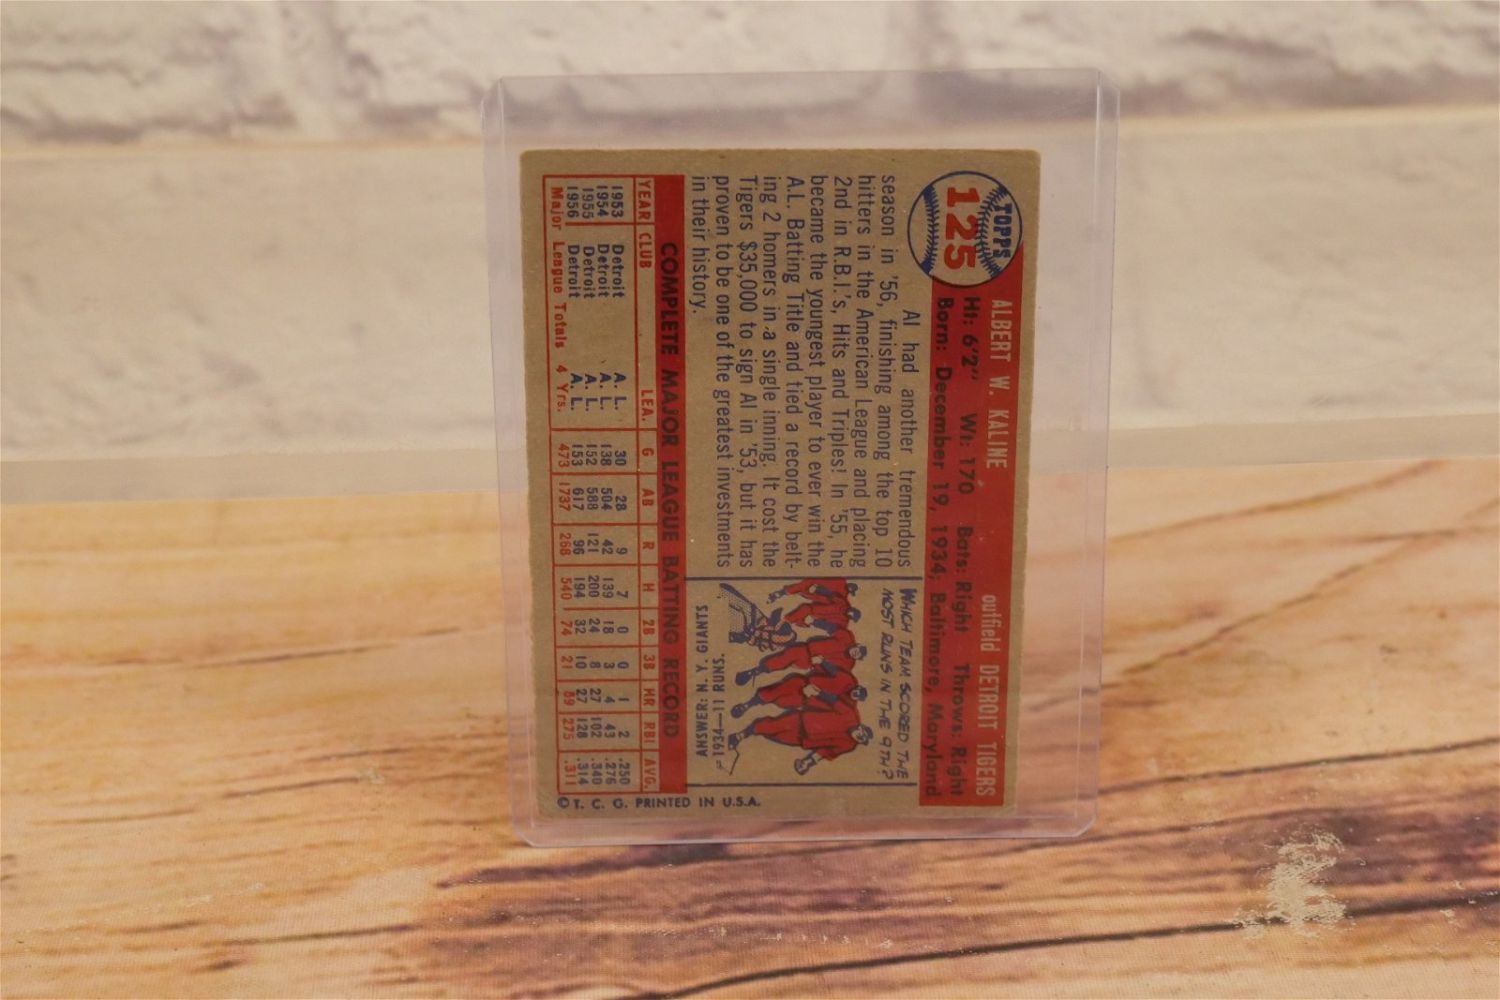 TOPPS
125
ALBERT W. KALINE outfield DETROIT TIGERS
Ht: 6'2" Wt: 170 Bats: Right Throws: Right
Born: December 19, 1934; Baltimore, Maryland
Al had another tremendous
season in '56, finishing among the top 10
hitters in the American League and placing
2nd in R.B.I.'s, Hits and Triples! In '55, he
became the youngest player to ever win the
A.L. Batting Title and tied a record by belt-
ing 2 homers in a single inning. It cost the
Tigers $35,000 to sign Al in '53, but it has
proven to be one of the greatest investments
in their history.
WHICH TEAM SCORED THE
MOST RUNS IN THE 9TH?
ANSWER: N. Y. GIANTS
1934—11 RUNS.
COMPLETE MAJOR LEAGUE BATTING RECORD
YEAR CLUB LEA. G AB R H 2B 3B HR RBI AVG.
1953 Detroit A. L. 30 28 9 7 0 0 1 2 .250
1954 Detroit A. L. 138 504 42 139 18 3 4 43 .276
1955 Detroit A. L. 152 588 121 200 24 8 27 102 .340
1956 Detroit A. L. 153 617 96 194 32 10 27 128 .314
Major League Totals 4 Yrs. 473 1737 268 540 74 21 59 275 .311
© T. C. G. PRINTED IN U.S.A.